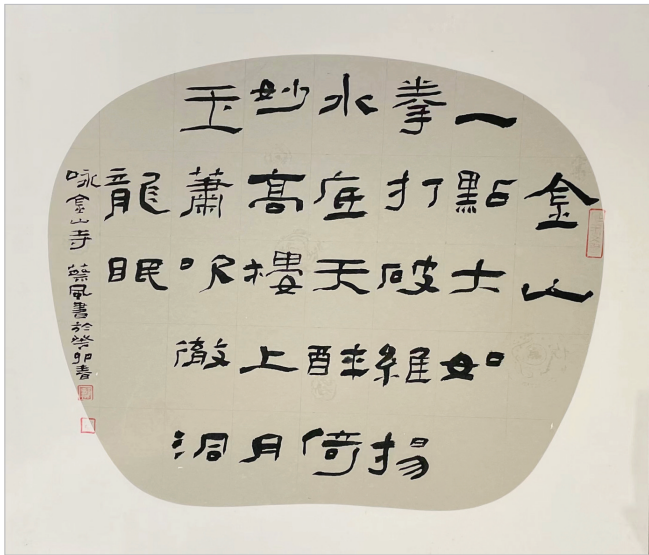 金山
一點大如
拳打破維揚
水底天醉倚
妙高樓上月
玉蕭吹徹洞
龍眠
咏金山寺 蔡風書於癸卯春